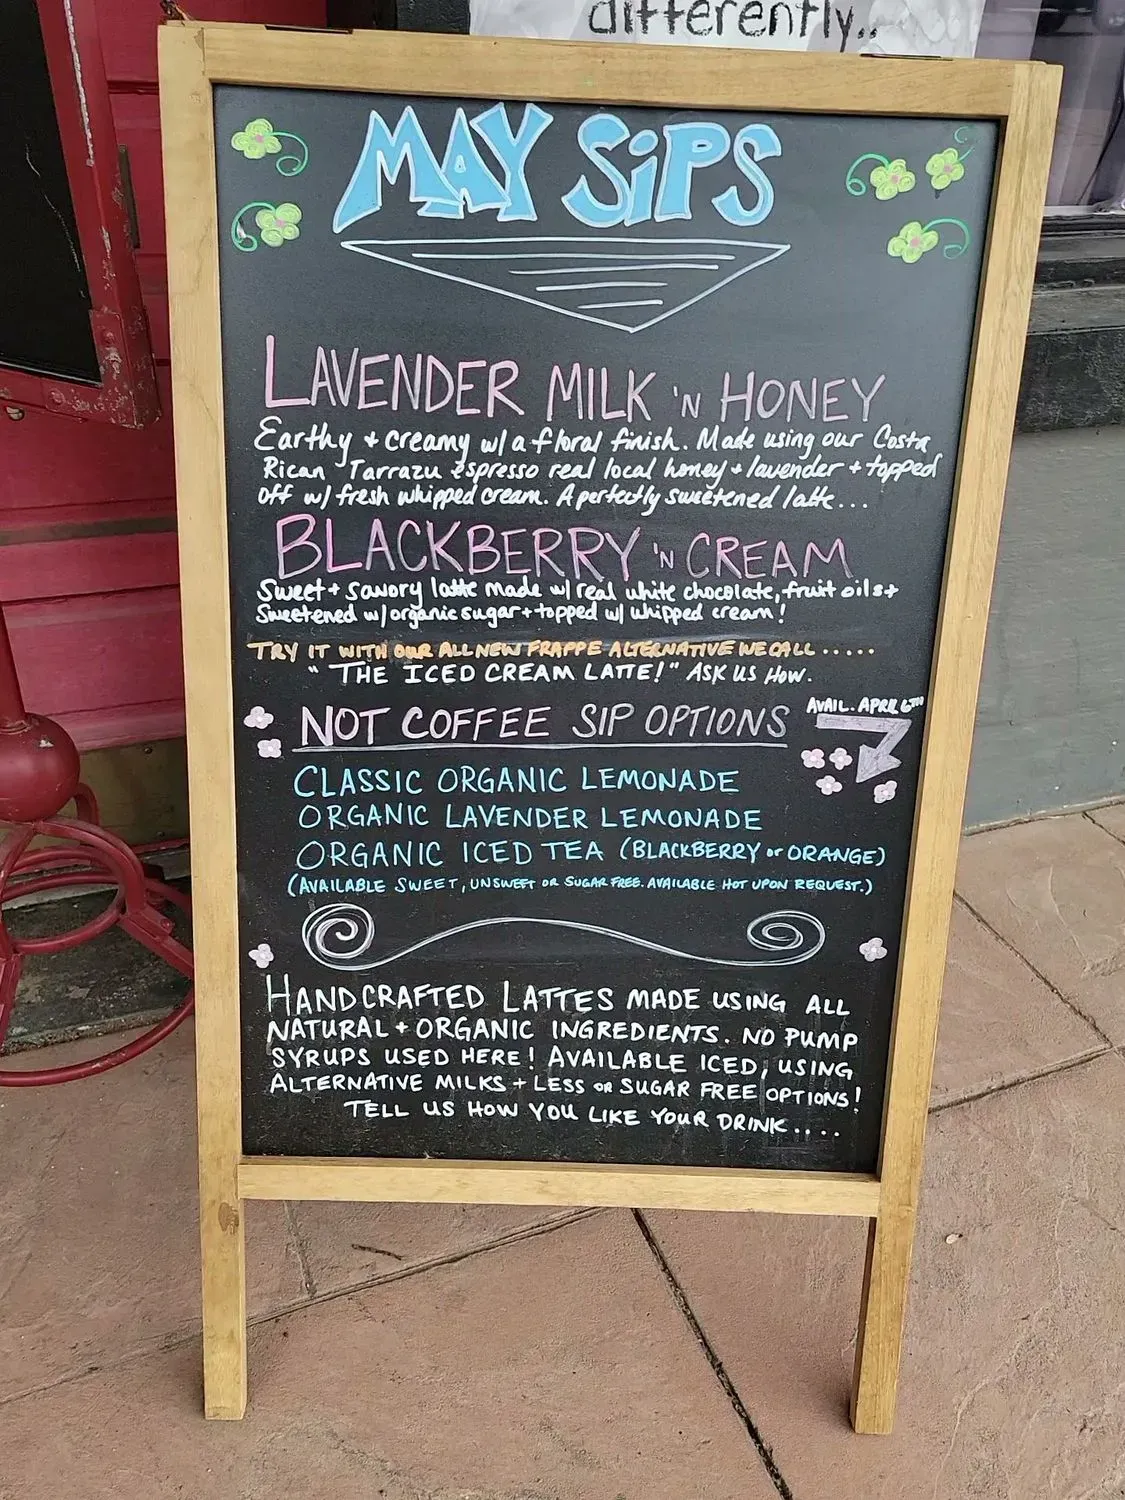 differently..
MAY SiPS
LAVENDER MILK 'N HONEY
Earthy + creamy w/ a floral finish. Made using our Costa
Rican Tarrazu espresso real local honey + lavender + topped
off w/ fresh whipped cream. A perfectly sweetened latte...
BLACKBERRY 'N CREAM
Sweet + savory latte made w/ real white chocolate, fruit oils +
Sweetened w/ organic sugar + topped w/ whipped cream!
TRY IT WITH OUR ALL NEW FRAPPE ALTERNATIVE WE CALL .....
"THE ICED CREAM LATTE!" ASK US HOW.
NOT COFFEE SIP OPTIONS
AVAIL. APRIL 6TH
CLASSIC ORGANIC LEMONADE
ORGANIC LAVENDER LEMONADE
ORGANIC ICED TEA (BLACKBERRY or ORANGE)
(AVAILABLE SWEET, UNSWEET OR SUGAR FREE. AVAILABLE HOT UPON REQUEST.)
HANDCRAFTED LATTES MADE USING ALL
NATURAL + ORGANIC INGREDIENTS. NO PUMP
SYRUPS USED HERE! AVAILABLE ICED, USING
ALTERNATIVE MILKS + LESS OR SUGAR FREE OPTIONS!
TELL US HOW YOU LIKE YOUR DRINK....